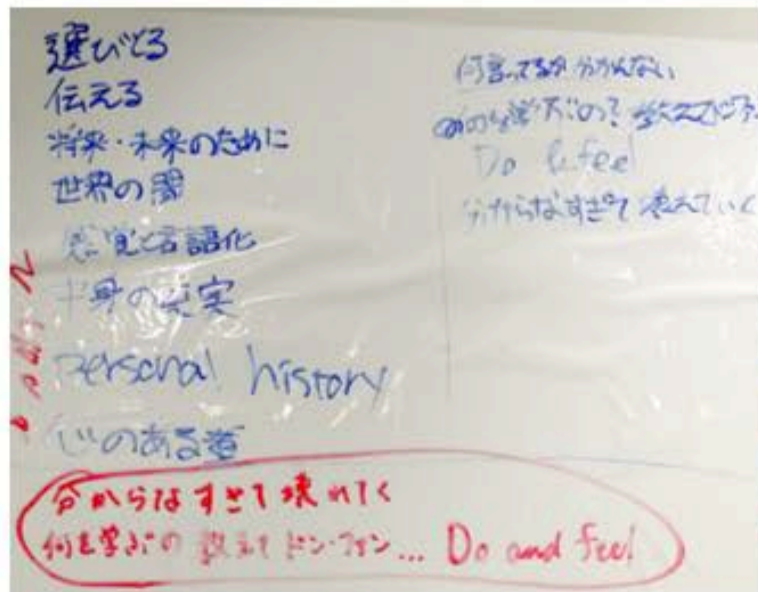 選びとる
伝える
将来・未来のために
世界の闇
感覚と言語化
中身の充実
personal history
心のある道
何言ってるか分かんない
何を学ぶの? 教えてドン・ファ
Do & feel
分からなすぎて壊れていく
分からなすぎて壊れてく
何を学ぶの 教えて ドン・ファン... Do and feel